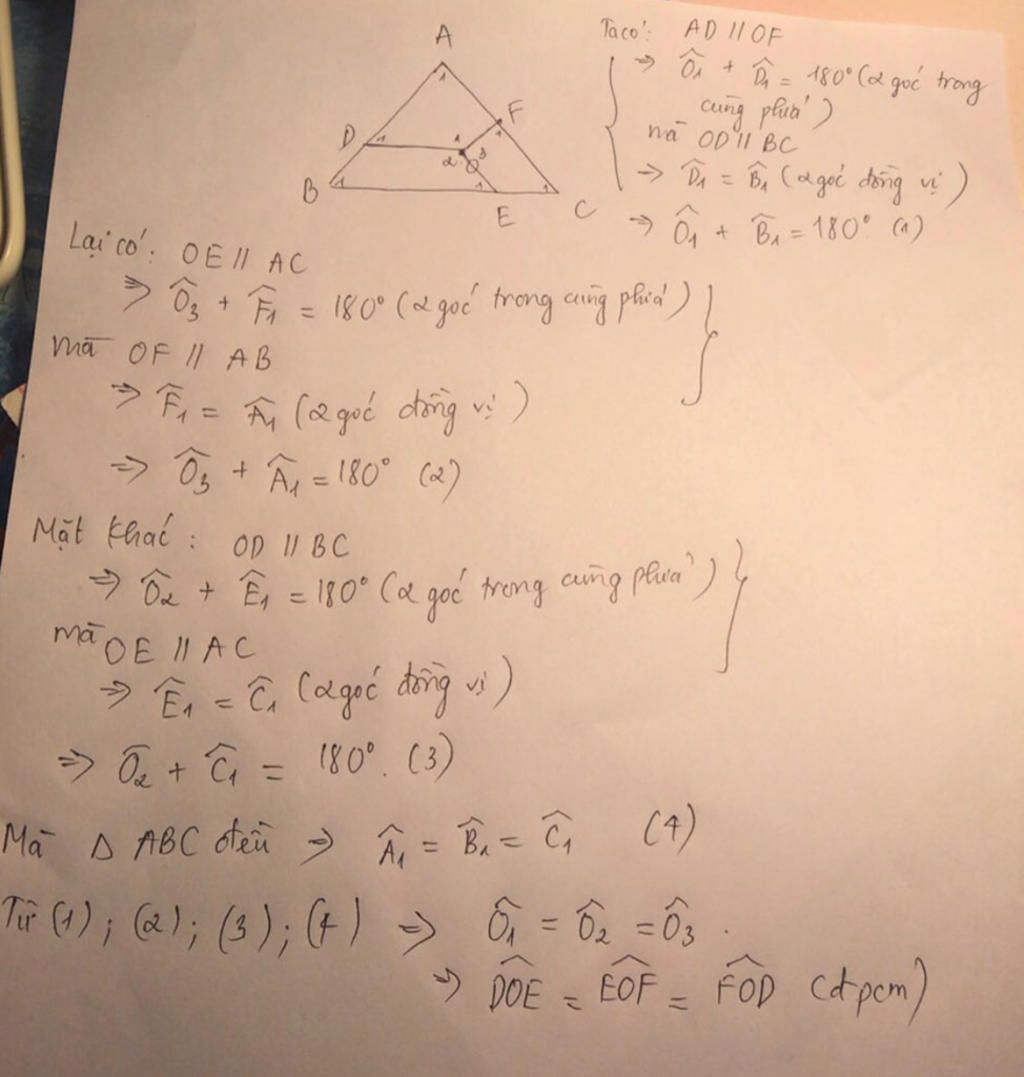 A
D
1
1
1
F
1
2
3
O
B
1
1
1
E
C
Ta có: AD // OF
⇒ Ô₁ + D̂₁ = 180° (2 góc trong
cùng phía)
mà OD // BC
⇒ D̂₁ = B̂₁ (2 góc đồng vị)
⇒ Ô₁ + B̂₁ = 180° (1)
Lại có: OE // AC
⇒ Ô₃ + F̂₁ = 180° (2 góc trong cùng phía)
mà OF // AB
⇒ F̂₁ = Â₁ (2 góc đồng vị)
⇒ Ô₃ + Â₁ = 180° (2)
Mặt khác: OD // BC
⇒ Ô₂ + Ê₁ = 180° (2 góc trong cùng phía)
mà OE // AC
⇒ Ê₁ = Ĉ₁ (2 góc đồng vị)
⇒ Ô₂ + Ĉ₁ = 180°. (3)
Mà Δ ABC đều ⇒ Â₁ = B̂₁ = Ĉ₁ (4)
Từ (1); (2); (3); (4) ⇒ Ô₁ = Ô₂ = Ô₃.
⇒ D̂OE = ÊOF = F̂OD (đpcm)